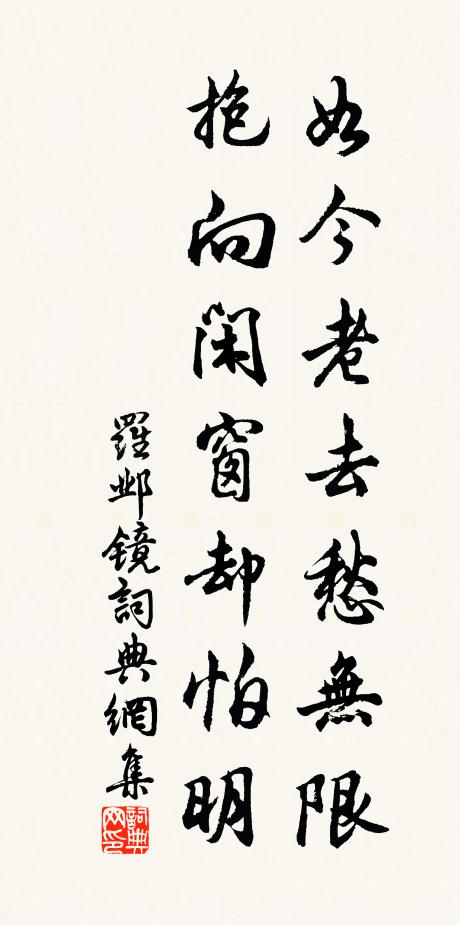 如今老去愁無限
抱向閑窗却怕明
羅邺鏡詞典網集
詞典网印